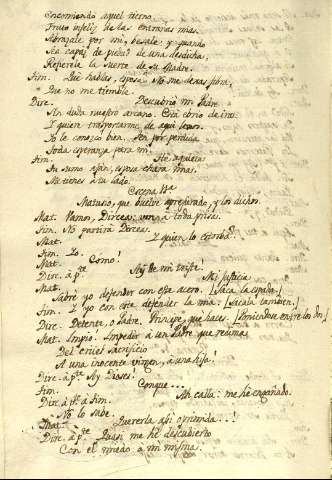 Encomiendo aquel tierno
Fruto infeliz de las entrañas mias.
Abrazale por mi, besale: y quando
Sea capaz de piedad de una desdicha,
Refierele la suerte de su Madre.
Tim. Qué hablas, esposa? No me dexas fibra,
Que no me tiemble.
Dirc. Descubrió mi Padre
Sin duda nuestro arcano. Está ebrio de ira:
I quiere trasportarme de aqui lexos.
Io le conozco bien. Ten por perdida
Toda esperanza para mi.
Tim. He, aquieta
Tu sumo afan, esposa chara mia.
Me tienes à tu lado.
Escena
Matusio, que vuelve apresurado, y los dichos.
Mat. Vamos, Dircea: ven à toda prisa.
Tim. No partirá Dircea.
Mat. I quien lo estorba?
Tim. Io.
Mat. Como!
Dirc. à pte Ay de mi triste!
Mat. Mi justicia
Sabré yo defender con este acero. [Saca la espada.]
Tim. I yo con este defender la mia. [Sacala tambien.]
Dirc. Detente, o Padre. Principe, que haces. [Poniendose entre los dos.]
Mat. Impio. Impedir à un Padre que redima
Del cruel sacrificio
A una inocente virgen, à una hija!
Dirc. à pte Ay Dioses!
Tim. Conque...
Dirc. à pte à Tim. Ah calla: me he engañado.
No lo sabe.
Mat. Quererla asi oprimida...!
Dirc. à pte Quasi me he descubierto
Con el miedo à mi misma.